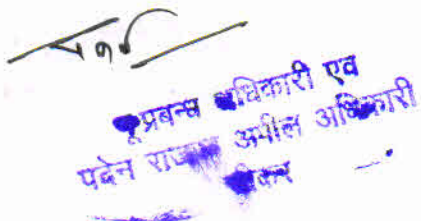 भूप्रबन्ध अधिकारी एवं
पदेन राजस्व अपील अधिकारी